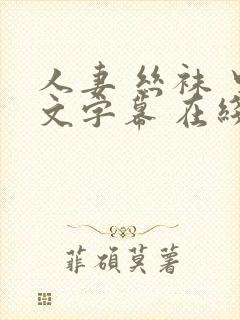 人妻 丝袜
文字幕 在
菲硕莫薯